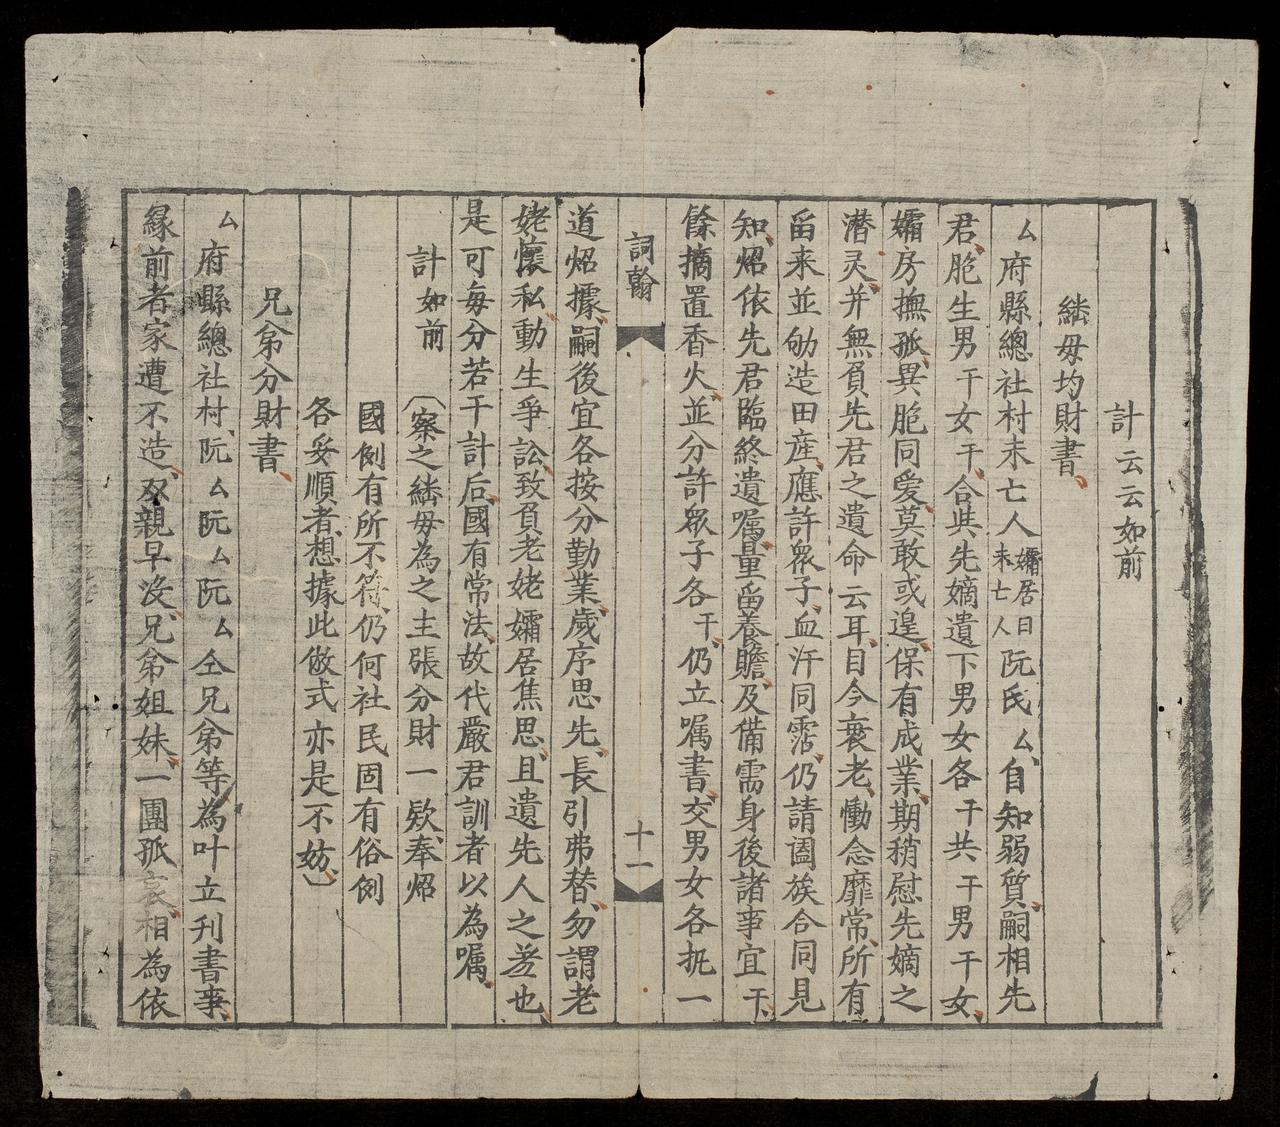 計云云如前
繼母均財書
厶府縣總社村未亡人孀居曰未亡人阮氏厶自知弱質嗣相先
君胞生男干女干合共先嫡遺下男女各干共干男干女
孀房撫孤異胞同愛莫敢或遑保有成業期稍慰先嫡之
潜灵并無負先君之遺命云耳目今衰老慟念靡常所有
畄来並刱造田産應許眾子血汗同霑仍請闔族合同見
知炤依先君臨終遺嘱量畄養贍及備需身後諸事宜干
餘摘置香火並分許眾子各干仍立嘱書交男女各抳一
詞翰
十一
道炤據嗣後宜各按分勤業歲序思先長引弗替勿謂老
姥懷私動生爭訟致負老姥孀居焦思且遺先人之羞也
是可每分若干計后國有常法故代嚴君訓者以為嘱
計如前
察之繼母為之主張分財一欵奉炤
國例有所不符仍何社民固有俗例
各妥順者想據此倣式亦是不妨
兄弟分財書
厶府縣總社村阮厶阮厶阮厶仝兄弟等為叶立刋書事
緣前者家遭不造双親早没兄弟姐妹一團孤哀相為依